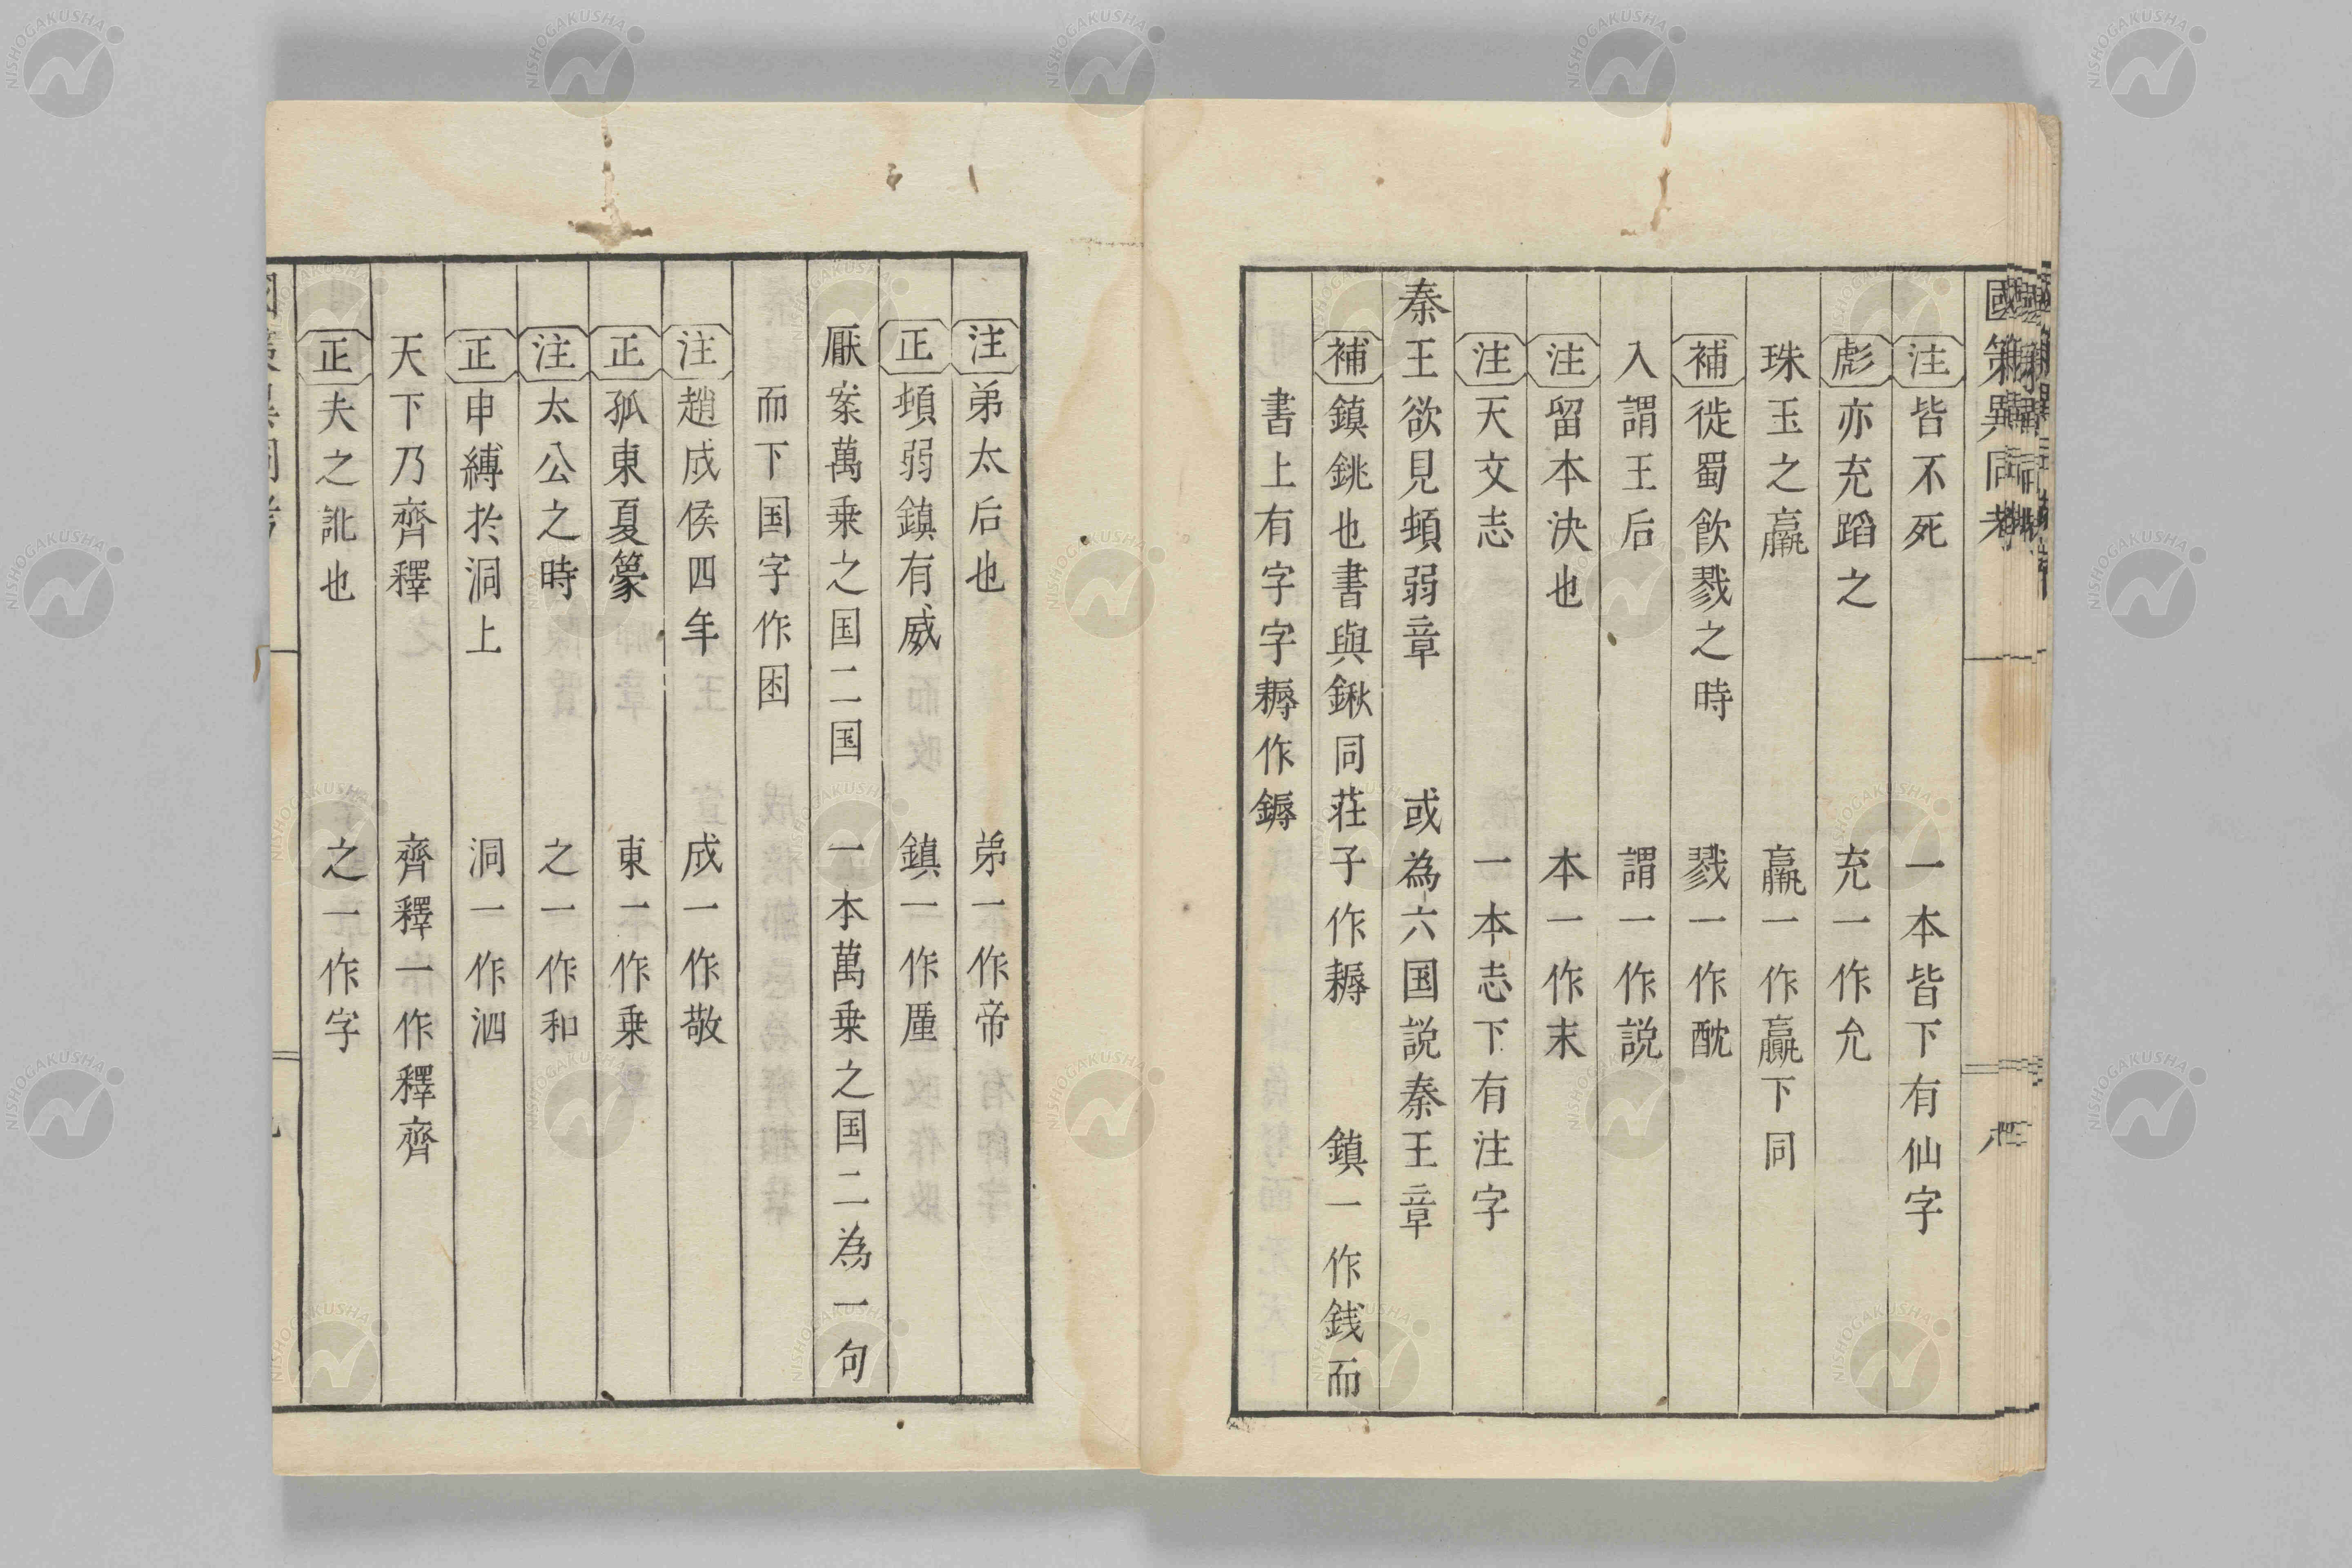 國策異同考
注 皆不死 一本皆下有仙字
彪 亦充蹈之 充一作允
珠玉之羸 羸一作贏下同
補 徙蜀飲戮之時 戮一作酖
入謂王后 謂一作説
注 留本決也 本一作末
注 天文志 一本志下有注字
秦王欲見頓弱章 或為六国説秦王章
補 鎮銚也書與鍬同莊子作耨 鎮一作銭而
書上有字字耨作鎒
注 弟太后也 弟一作帝
正 頓弱鎮有威 鎮一作厘
厭案萬乗之国二国 一本萬乗之国二為一句
而下国字作困
注 趙成侯四年 成一作敬
正 孤東夏篆 東一作乗
注 太公之時 之一作和
正 申縛於洞上 洞一作泗
天下乃齊釋 齊釋一作釋齊
正 夫之訛也 之一作字
NISHOGAKUSHA